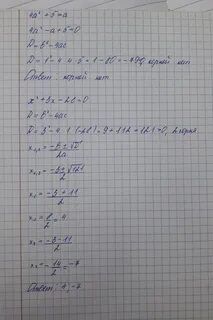 4a² + 5 = a
4a² - a + 5 = 0
D = b² - 4ac
D = 1² - 4·4·5 = 1 - 80 = -79<0, корней нет
Ответ: корней нет
x² + 3x - 28 = 0
D = b² - 4ac
D = 3² - 4·1·(-28) = 9 + 112 = 121 > 0, 2 корня
x₁,₂ = -b ± √D / 2a
x₁,₂ = -3 ± √121 / 2
x₁ = -3 + 11 / 2
x₁ = 8 / 2 = 4
x₂ = -3 - 11 / 2
x₂ = - 14 / 2 = -7
Ответ: 4, -7